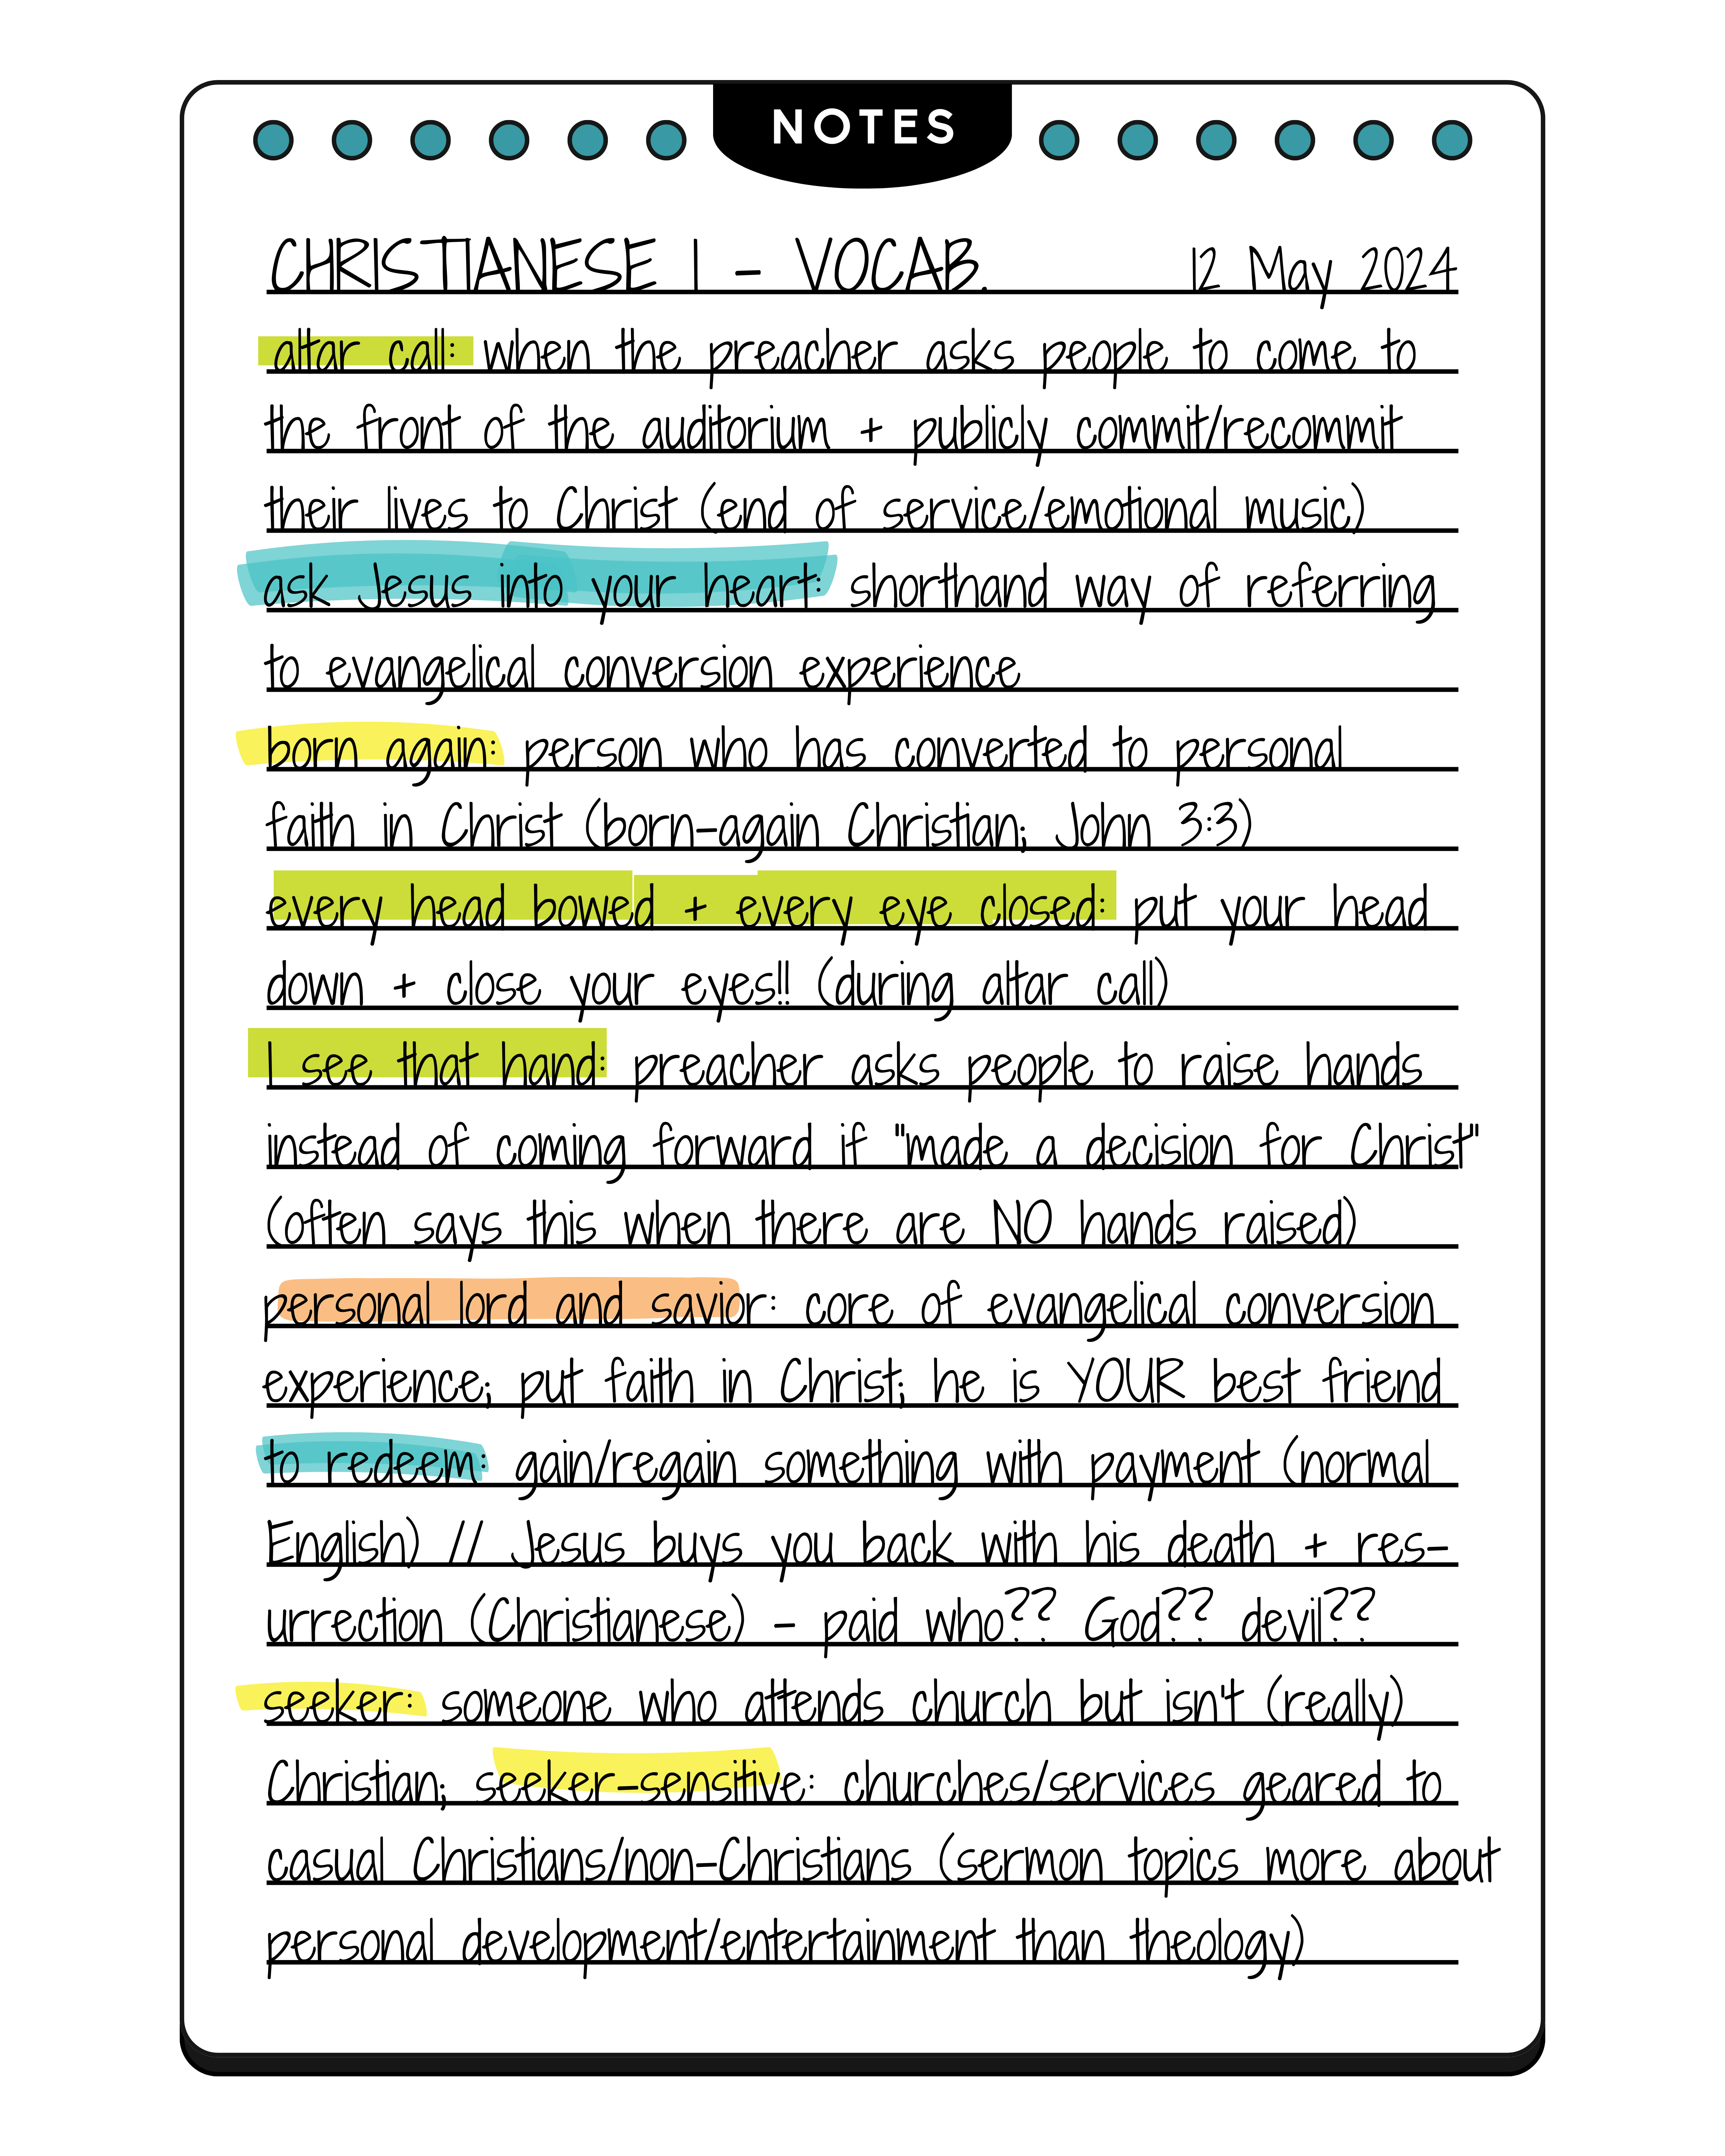 NOTES
CHRISTIANESE 1 - VOCAB. 12 May 2024
altar call: when the preacher asks people to come to
the front of the auditorium + publicly commit/recommit
their lives to Christ (end of service/emotional music)
ask Jesus into your heart: shorthand way of referring
to evangelical conversion experience
born again: person who has converted to personal
faith in Christ (born-again Christian; John 3:3)
every head bowed + every eye closed: put your head
down + close your eyes!! (during altar call)
I see that hand: preacher asks people to raise hands
instead of coming forward if "made a decision for Christ"
(often says this when there are NO hands raised)
personal lord and savior: core of evangelical conversion
experience; put faith in Christ; he is YOUR best friend
to redeem: gain/regain something with payment (normal
English) // Jesus buys you back with his death + res-
urrection (Christianese) - paid who?? God?? devil??
seeker: someone who attends church but isn't (really)
Christian; seeker-sensitive: churches/services geared to
casual Christians/non-Christians (sermon topics more about
personal development/entertainment than theology)